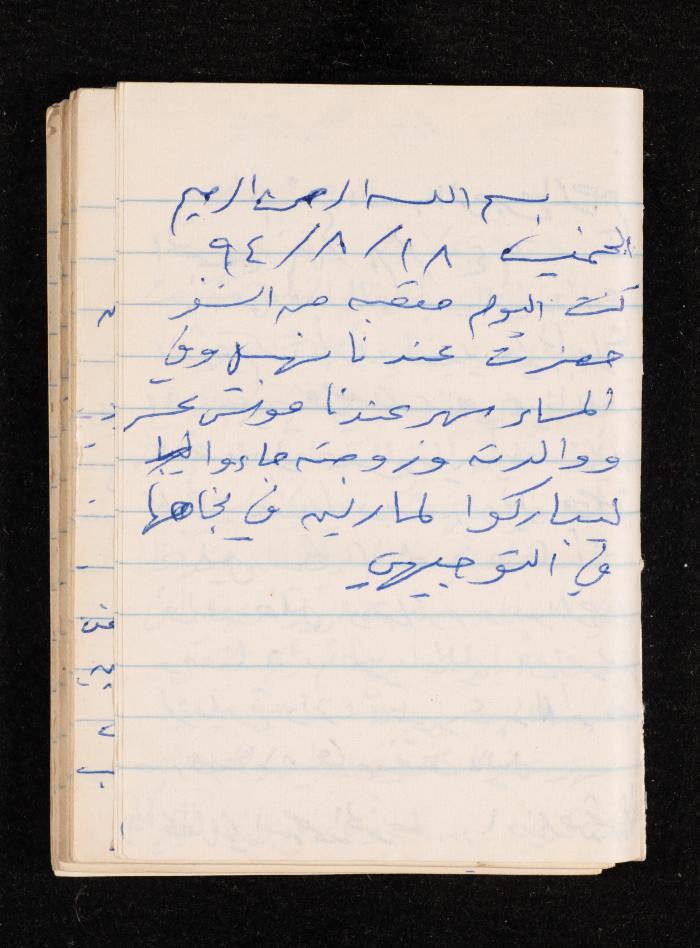 بسم الله الرحمن الرحيم
الخميس ١٨/٨/٩٤
كنت اليوم متعبه من السفر
حضرت عندنا نهى وفي
المساء سهر عندنا مؤنس
ووالدته وزوجته جاءوا
ليباركوا لمارلين في نجاحها
في التوجيهي